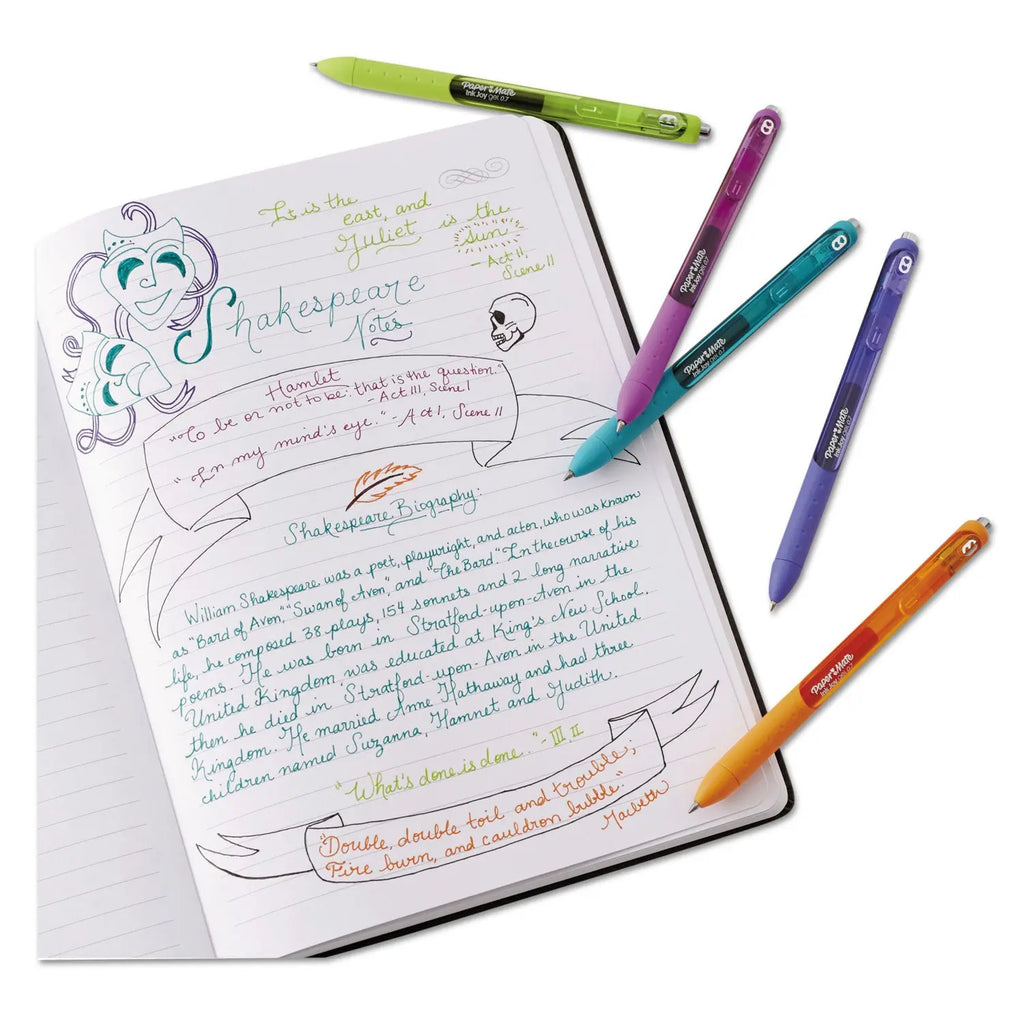 It is the
east, and
Juliet is the
sun
- Act II,
Scene II
Shakespeare
Notes
Hamlet
"To be or not to be: that is the question."
- Act III, Scene I
"In my mind's eye." - Act I, Scene II
Shakespeare Biography:
William Shakespeare was a poet, playwright, and actor, who was known
as "Bard of Avon," "Swan of Avon", and "The Bard." In the course of his
life, he composed 38 plays, 154 sonnets and 2 long narrative
poems. He was born in Stratford-upon-Avon in the
United Kingdom, was educated at King's New School,
then he died in Stratford-upon-Avon in the United
Kingdom. He married Anne Hathaway and had three
children named Suzanna, Hamnet and Judith.
"What's done is done." - III, II
"Double, double toil and trouble;
Fire burn, and cauldron bubble."
Macbeth
Paper Mate
InkJoy gel 0.7
Paper Mate
InkJoy gel 0.7
Paper Mate
InkJoy gel 0.7
Paper Mate
InkJoy gel 0.7
Paper Mate
InkJoy gel 0.7